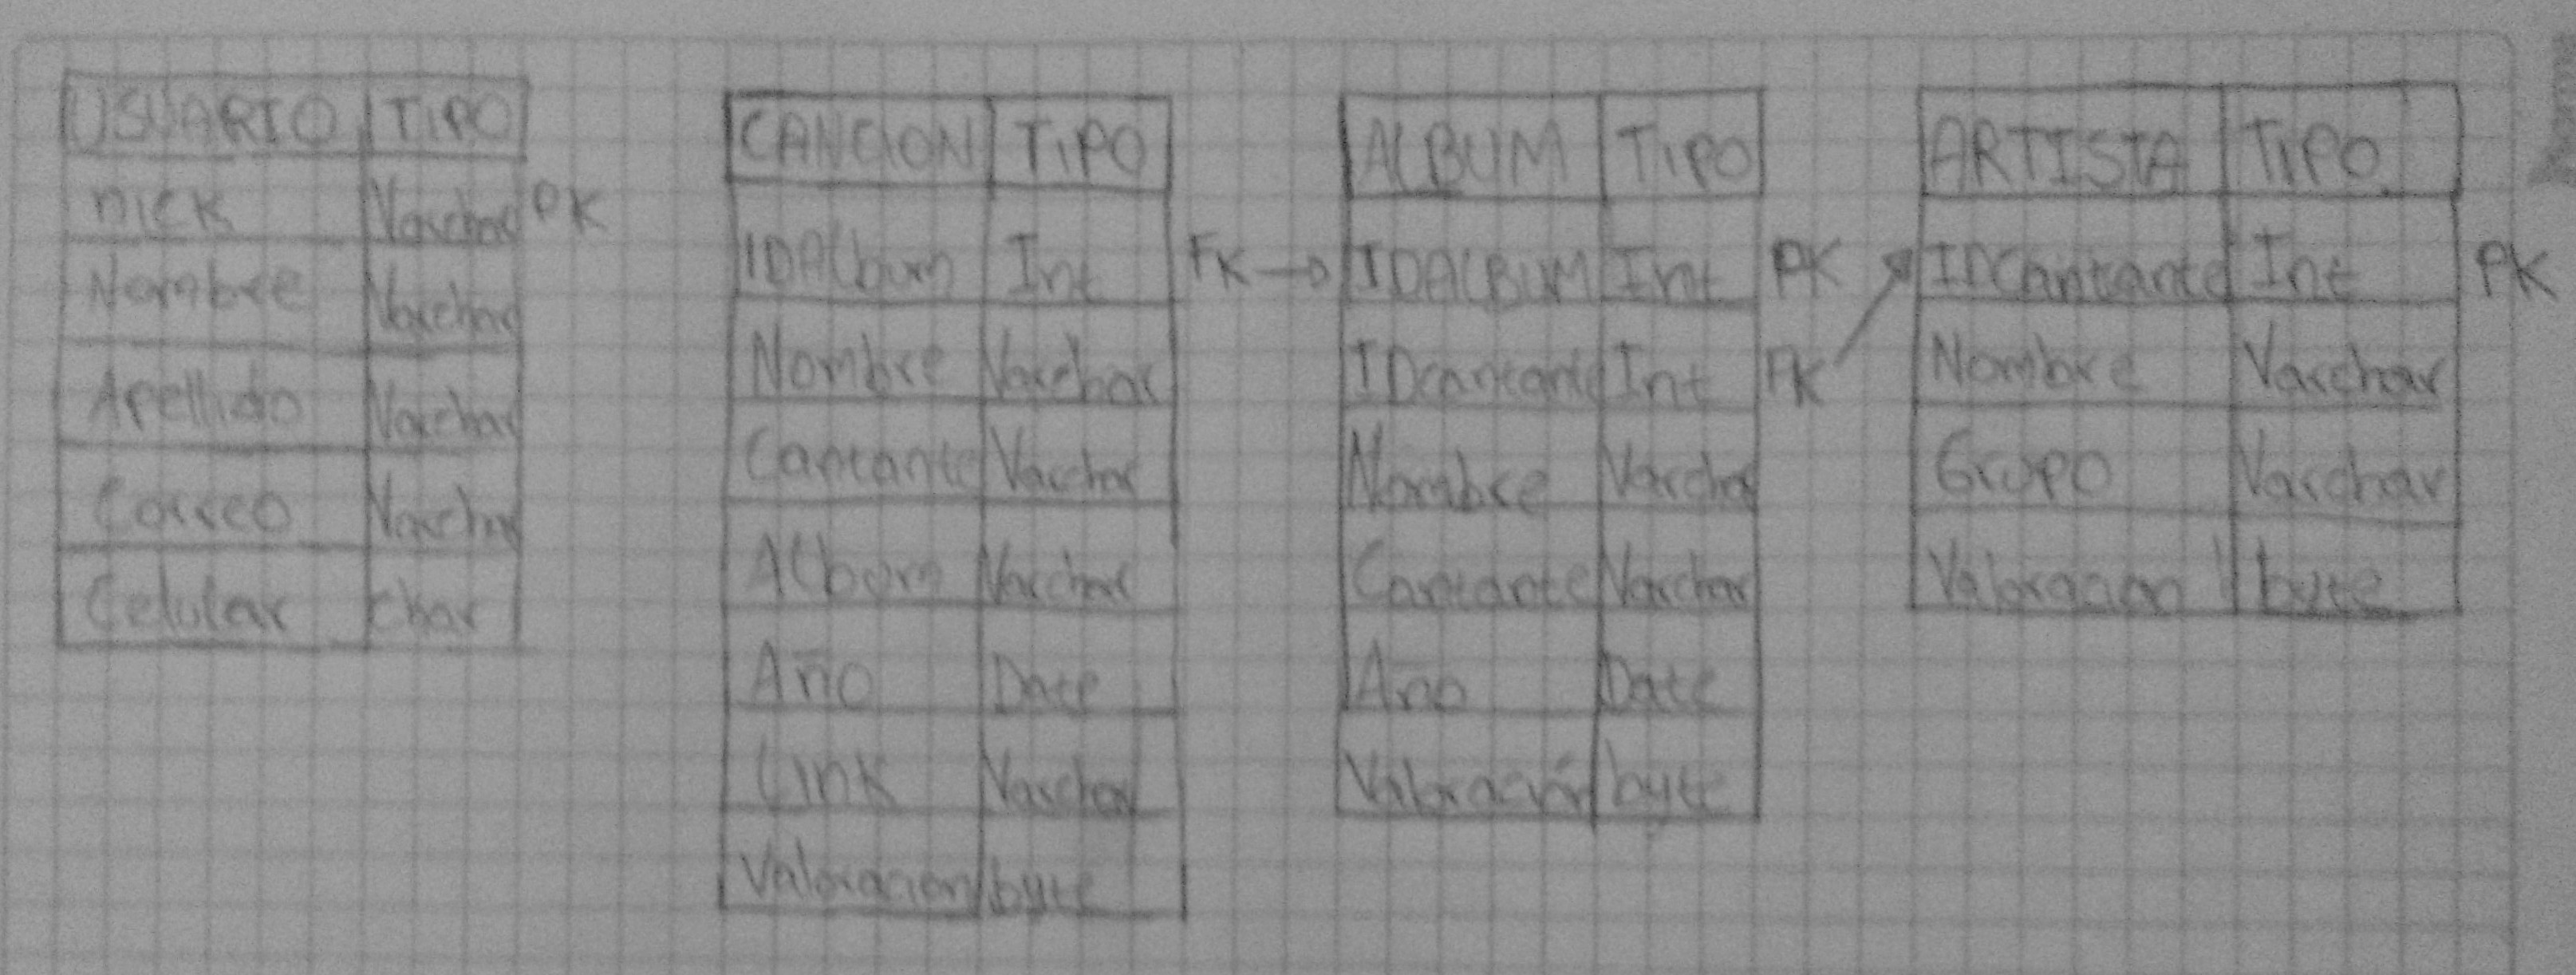 USUARIO TIPO
nick Varchar PK
Nombre Varchar
Apellido Varchar
Correo Varchar
Celular char
CANCION TIPO
IDAlbum Int FK →
Nombre Varchar
Cantante Varchar
Album Varchar
Año Date
Link Varchar
Valoracion byte
ALBUM TIPO
IDALBUM Int PK
IDcantante Int FK
Nombre Varchar
Cantante Varchar
Año Date
Valoración byte
ARTISTA TIPO
IDCantante Int PK
Nombre Varchar
Grupo Varchar
Valoracion byte